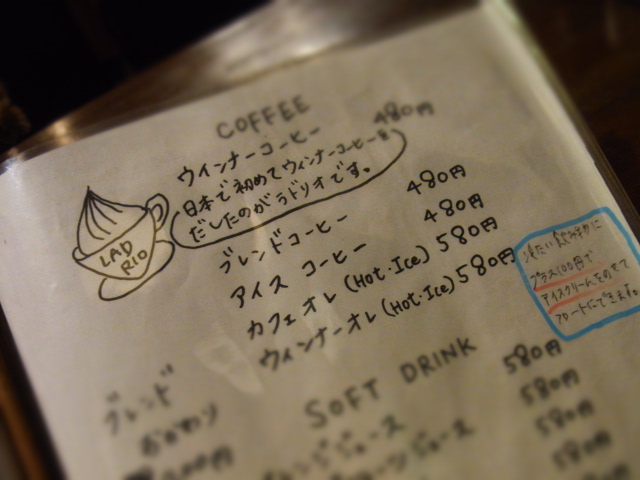 COFFEE
ウインナーコーヒー 480円
日本で初めてウィンナーコーヒーを
だしたのがラドリオです。
LAD
RIO
ブレンドコーヒー 480円
アイス コーヒー 480円
カフェオレ (Hot・Ice) 580円
ウィンナーオレ (Hot・Ice) 580円
冷たい飲み物に
プラス100円で
アイスクリームをのせて
フロートにできます。
SOFT DRINK
ブレンド
おかわり
580円
580円
580円